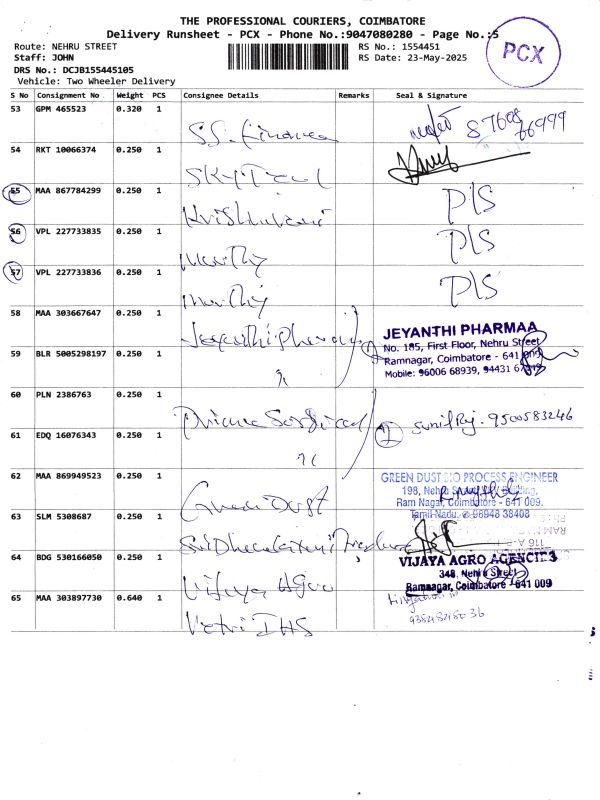 THE PROFESSIONAL COURIERS, COIMBATORE
Delivery Runsheet - PCX - Phone No.:9047080280 - Page No.:5
Route: NEHRU STREET
Staff: JOHN
DRS No.: DCJB155445105
Vehicle: Two Wheeler Delivery
RS No.: 1554451
RS Date: 23-May-2025
PCX
S No Consignment No Weight PCS Consignee Details Remarks Seal & Signature
53 GPM 465523 0.320 1 S.S. Finance
54 RKT 10066374 0.250 1
55 MAA 867784299 0.250 1 P/S
56 VPL 227733835 0.250 1 Marthy P/S
57 VPL 227733836 0.250 1 Marthy P/S
58 MAA 303667647 0.250 1 Jeyanthi Pharma
JEYANTHI PHARMAA
No. 185, First Floor, Nehru Street
Ramnagar, Coimbatore - 641 009
Mobile: 96006 68939, 94431
59 BLR 5005298197 0.250 1
60 PLN 2386763 0.250 1
Sunil Raj. 9500583246
61 EDQ 16076343 0.250 1
62 MAA 869949523 0.250 1 Green Dust
GREEN DUST BIO PROCESS ENGINEER
198, Nehru
Ram Nagar, Coimbatore - 641 009.
Tamil Nadu. 96948 38408
63 SLM 5308687 0.250 1
64 BDG 530166050 0.250 1 Vijaya Agro
VIJAYA AGRO AGENCIES
348, Nehru Street
Ramnagar, Coimbatore - 641 009
65 MAA 303897730 0.640 1 Vetri IAS